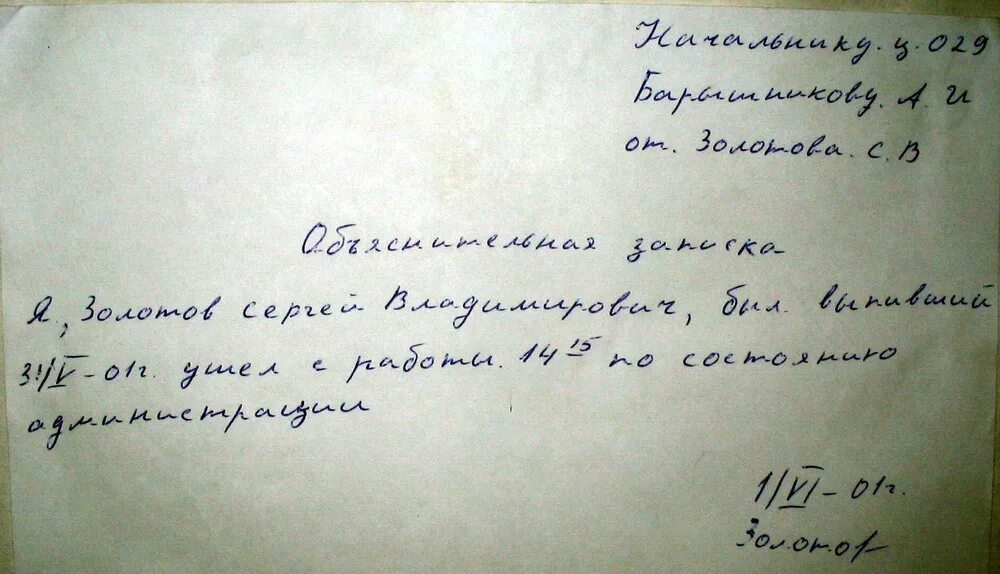 Начальнику. ц. 029
Барышникову. А. И
от. Золотова. С. В
Объяснительная записка
Я, Золотов Сергей Владимирович, был. выпивший
31/V-01г. ушел с работы. 14 15 по состоянию
администрации
1/VI-01г.
Золотов